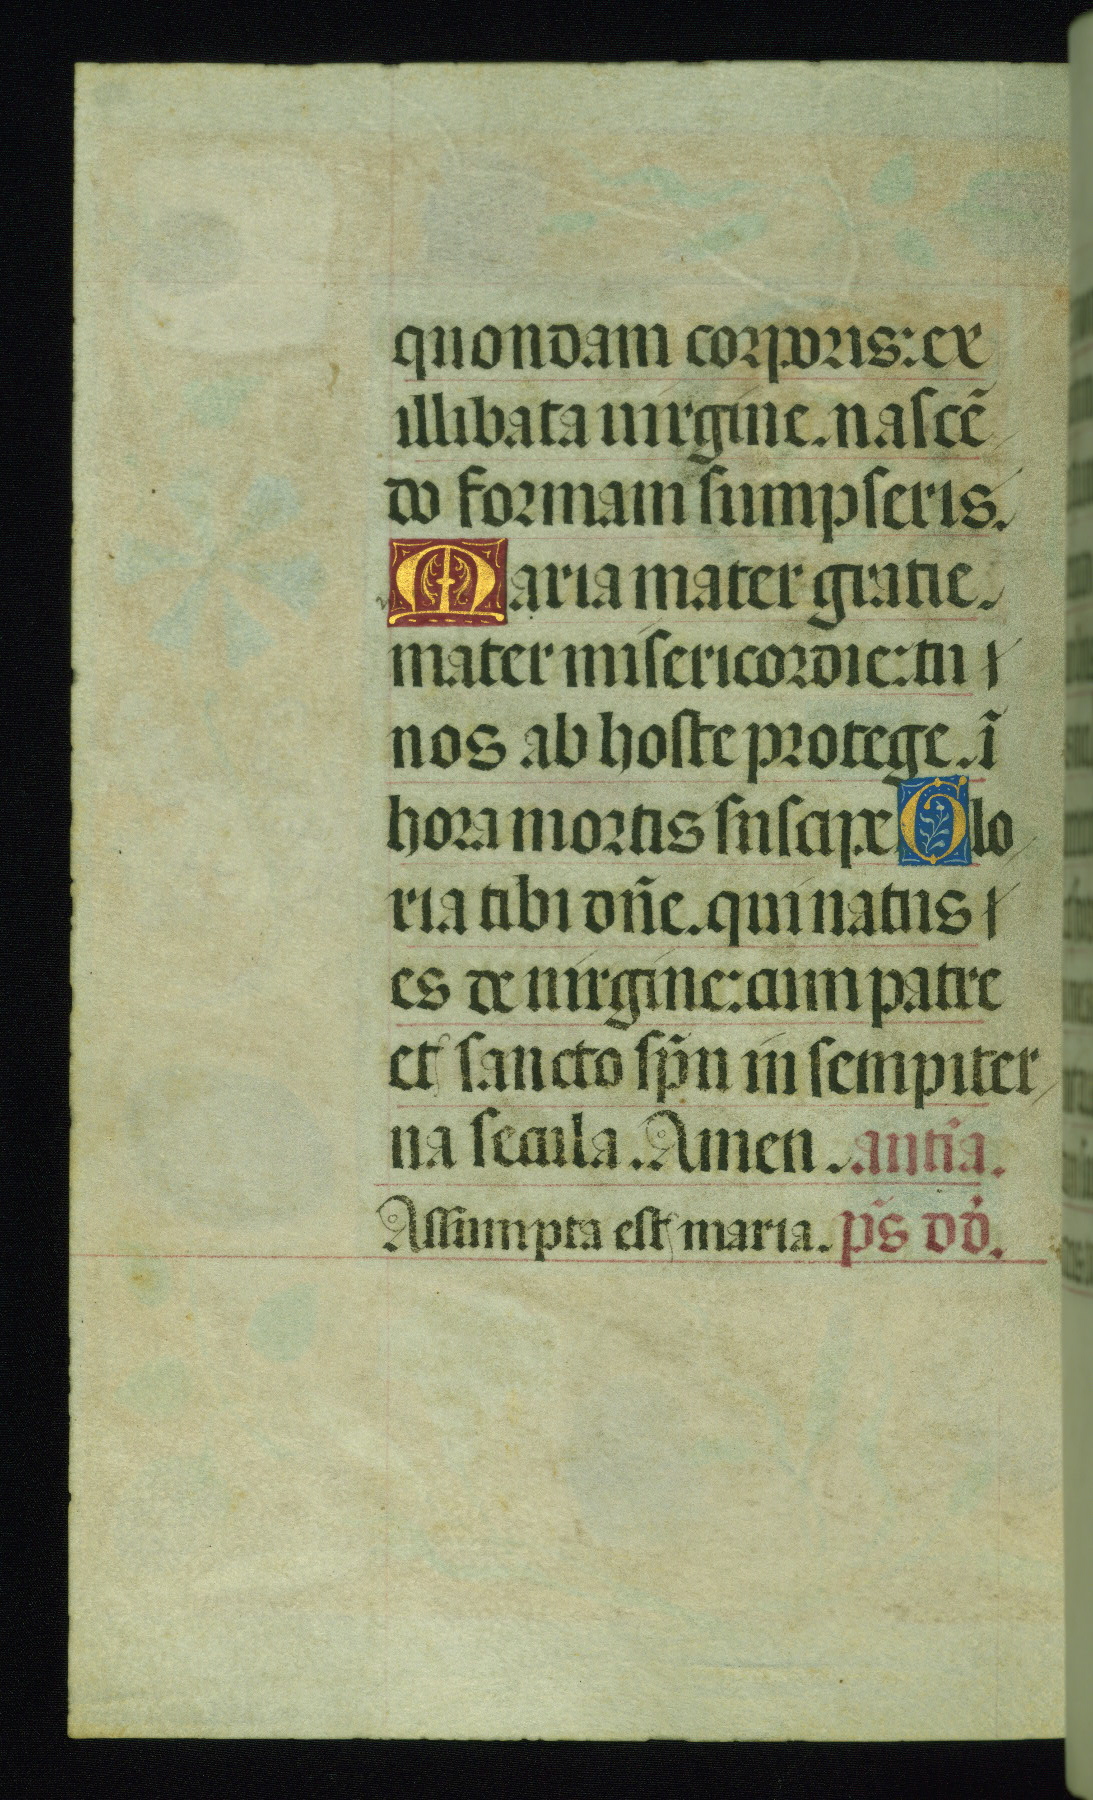 quondam corporis: ex
illibata uirgine. nascē
do formam sumpseris.
Maria mater gratie.
mater misericordie: tu
nos ab hoste protege. ī
hora mortis suscipe Glo
ria tibi dn̄e. qui natus
es de uirgine: cum patre
et sancto sp̄u in sempiter
na secula. Amen. antīa.
Assumpta est maria. p̄s dd̓.